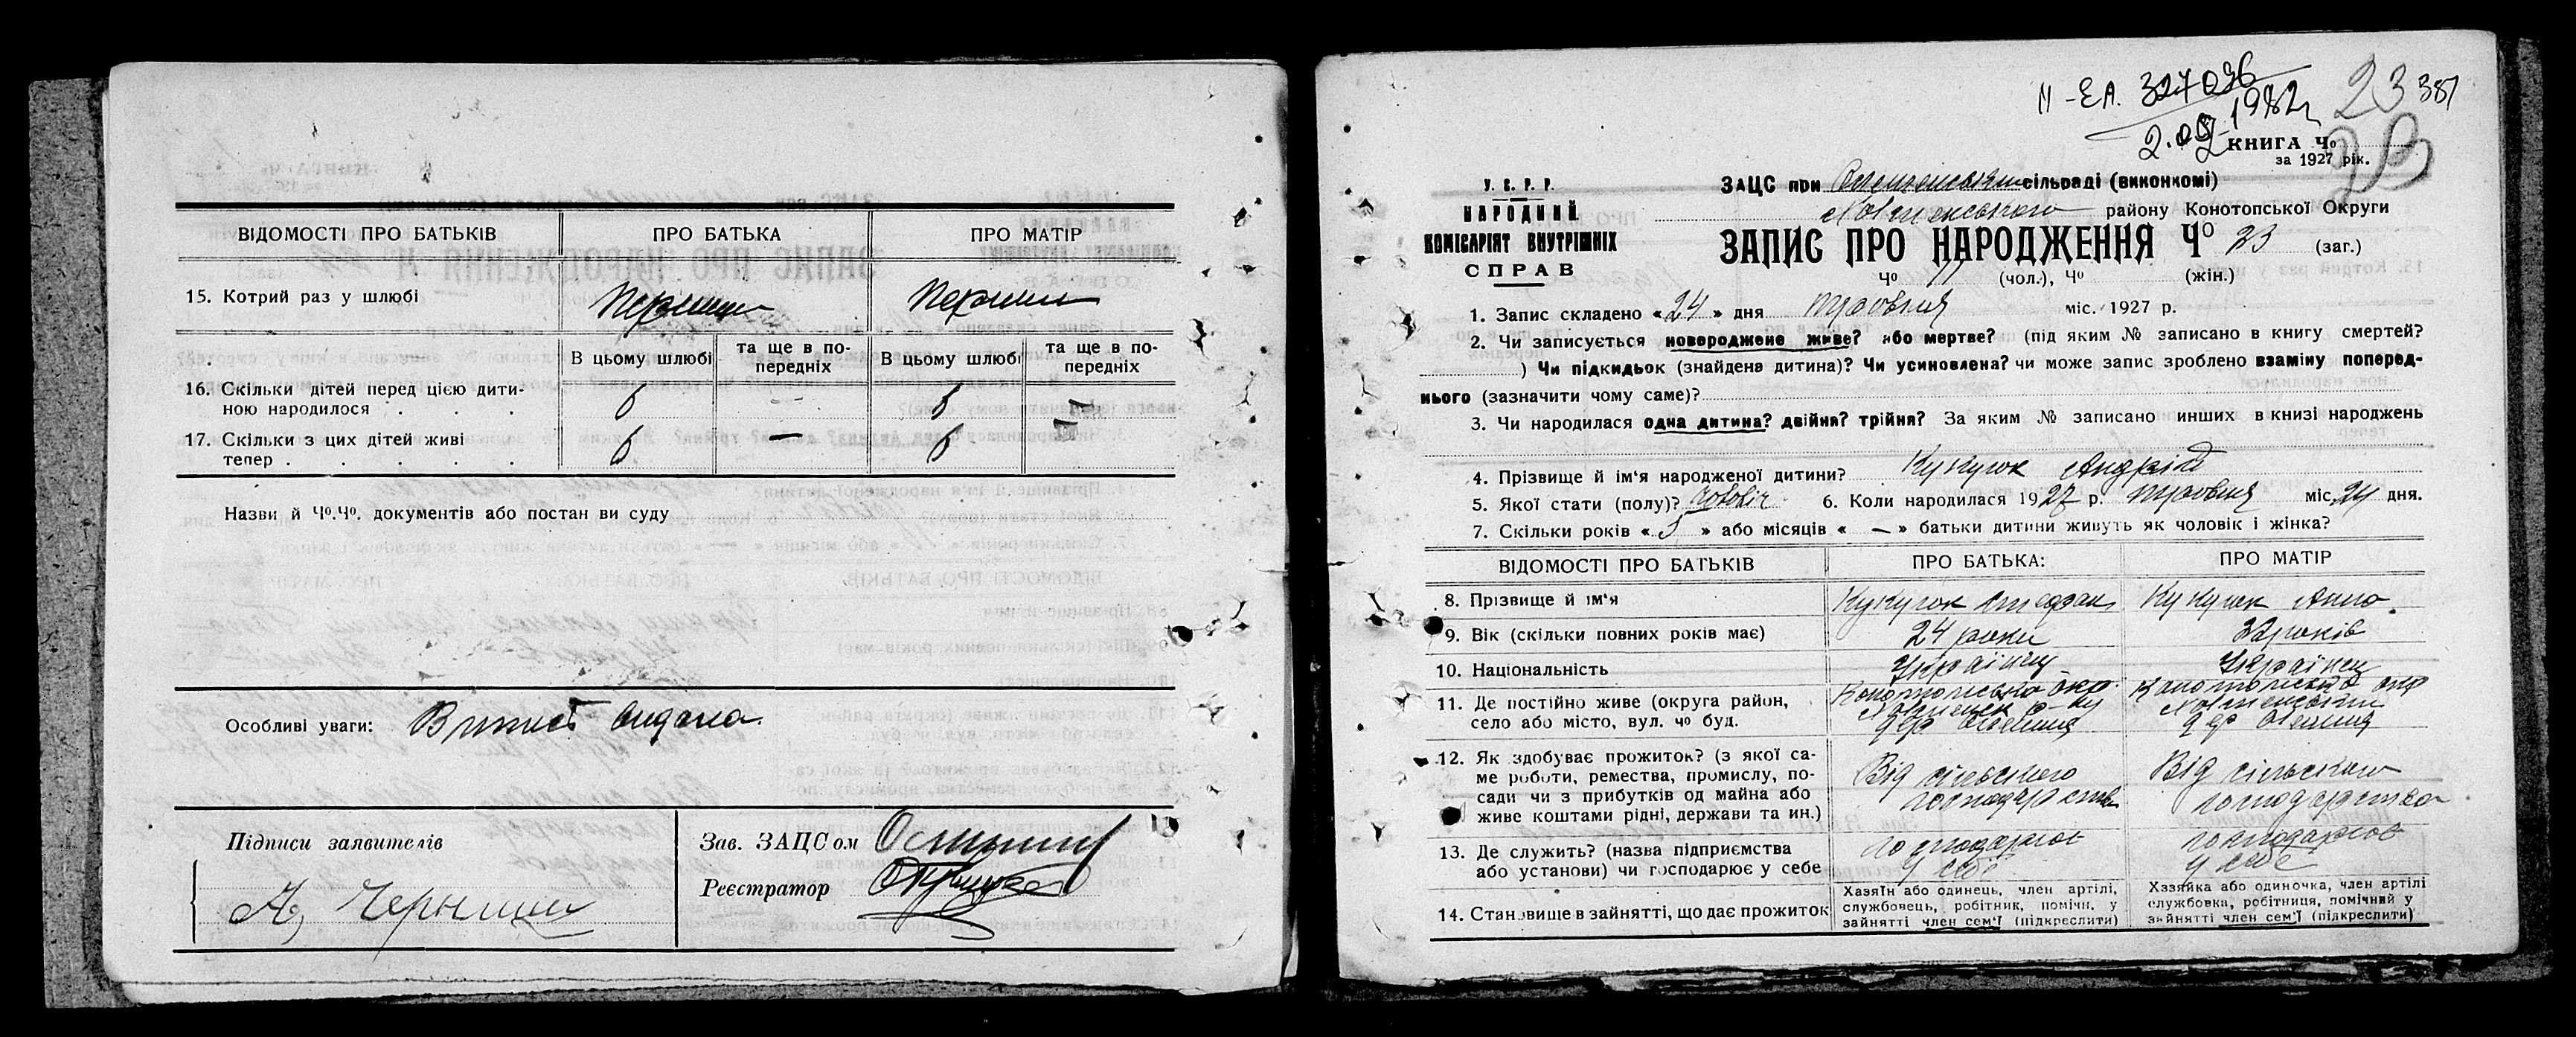 ВІДОМОСТІ ПРО БАТЬКІВ
ПРО БАТЬКА
ПРО МАТІР
15. Котрий раз у шлюбі
В цьому шлюбі
та ще в по-
передніх
В цьому шлюбі
та ще в по-
передніх
16. Скільки дітей перед цією дити-
ною народилося . . .
17. Скільки з цих дітей живі
тепер . . . . .
Назви й Чо.Чо. документів або постан ви суду
Особливі уваги: видана
Підписи заявителів
Зав. ЗАЦСом
Реєстратор
327096
1982
23 387
КНИГА Чо
за 1927 рік.
У. С. Р. Р.
НАРОДНИЙ
КОМІСАРІЯТ ВНУТРІШНІХ
СПРАВ
ЗАЦС при сільраді (виконкомі)
району Конотопської Округи
ЗАПИС ПРО НАРОДЖЕННЯ Чо 23 (заг.)
Чо 11 (чол.), Чо (жін.)
1. Запис складено «24» дня травня міс. 1927 р.
2. Чи записується новороджене живе? або мертве? (під яким № записано в книгу смертей?
) Чи підкидьок (знайдена дитина)? Чи усиновлена? чи може запис зроблено взаміну поперед-
нього (зазначити чому саме)?
3. Чи народилася одна дитина? двійня? трійня? За яким № записано инших в книзі народжень
4. Прізвище й ім'я народженої дитини? Андрій
5. Якої стати (полу)? 6. Коли народилася 1927 р. травня міс. 24 дня.
7. Скільки років «5» або місяців «—» батьки дитини живуть як чоловік і жінка?
ВІДОМОСТІ ПРО БАТЬКІВ
ПРО БАТЬКА:
ПРО МАТІР
8. Прізвище й ім'я
Анна
9. Вік (скільки повних років має)
24 роки
10. Національність
11. Де постійно живе (округа район,
село або місто, вул. чо буд.
12. Як здобуває прожиток? (з якої са-
ме роботи, ремества, промислу, по-
сади чи з прибутків од майна або
живе коштами рідні, держави та ин.)
Від сільського
господарства
Від сільського
господарства
13. Де служить? (назва підприємства
або установи) чи господарює у себе
господарює
у себе
господарює
у себе
14. Становище в зайнятті, що дає прожиток
Хазяїн або одинець, член артілі,
службовець, робітник, помічн. у
зайнятті член сем'ї (підкреслити)
Хазяйка або одиночка, член артілі
службовка, робітниця, помічний у
зайнятті член сем'ї (підкреслити)